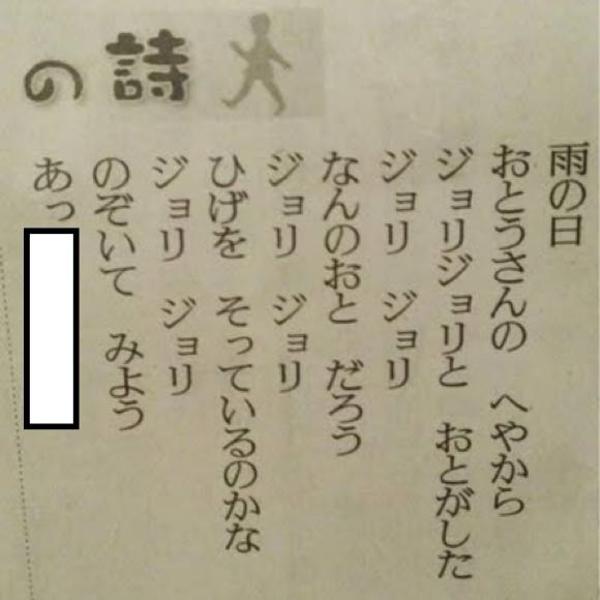 の詩
雨の日
おとうさんの　へやから
ジョリジョリと　おとがした
ジョリ　ジョリ
なんのおと　だろう
ジョリ　ジョリ
ひげを　そっているのかな
ジョリ　ジョリ
のぞいて　みよう
あっ